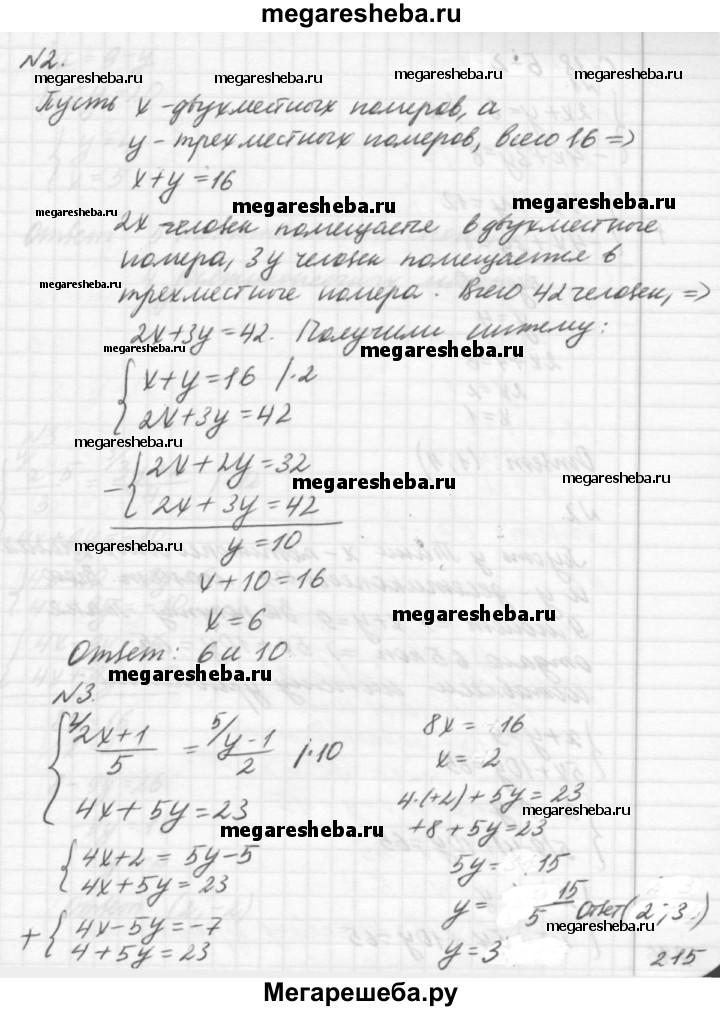 megaresheba.ru
№2.
megaresheba.ru megaresheba.ru megaresheba.ru
Пусть x - двухместных номеров, а
y - трехместных номеров, всего 16 =>
megaresheba.ru megaresheba.ru
x+y=16
megaresheba.ru megaresheba.ru megaresheba.ru
2x человек помещается в двухместные
номера, 3y человек помещается в
megaresheba.ru megaresheba.ru
трехместные номера. Всего 42 человек, =>
2x+3y=42. Получили систему:
megaresheba.ru megaresheba.ru
{ x+y=16 |·2
2x+3y=42
megaresheba.ru
- { 2x+2y=32
megaresheba.ru megaresheba.ru
2x+3y=42
y=10
megaresheba.ru
x+10=16
megaresheba.ru
x=6
Ответ: 6 и 10
megaresheba.ru
№3.
{ 2/ 2x+1 / 5 = 5/ y-1 / 2 |·10
4x+5y=23
megaresheba.ru
{ 4x+2=5y-5
4x+5y=23
+ { 4x-5y=-7
4+5y=23
8x=16
x=2
4·(+2)+5y=23
megaresheba.ru
+8+5y=23
5y=15
y= 15/5 Ответ (2;3)
megaresheba.ru
y=3
215
Мегарешеба.ру